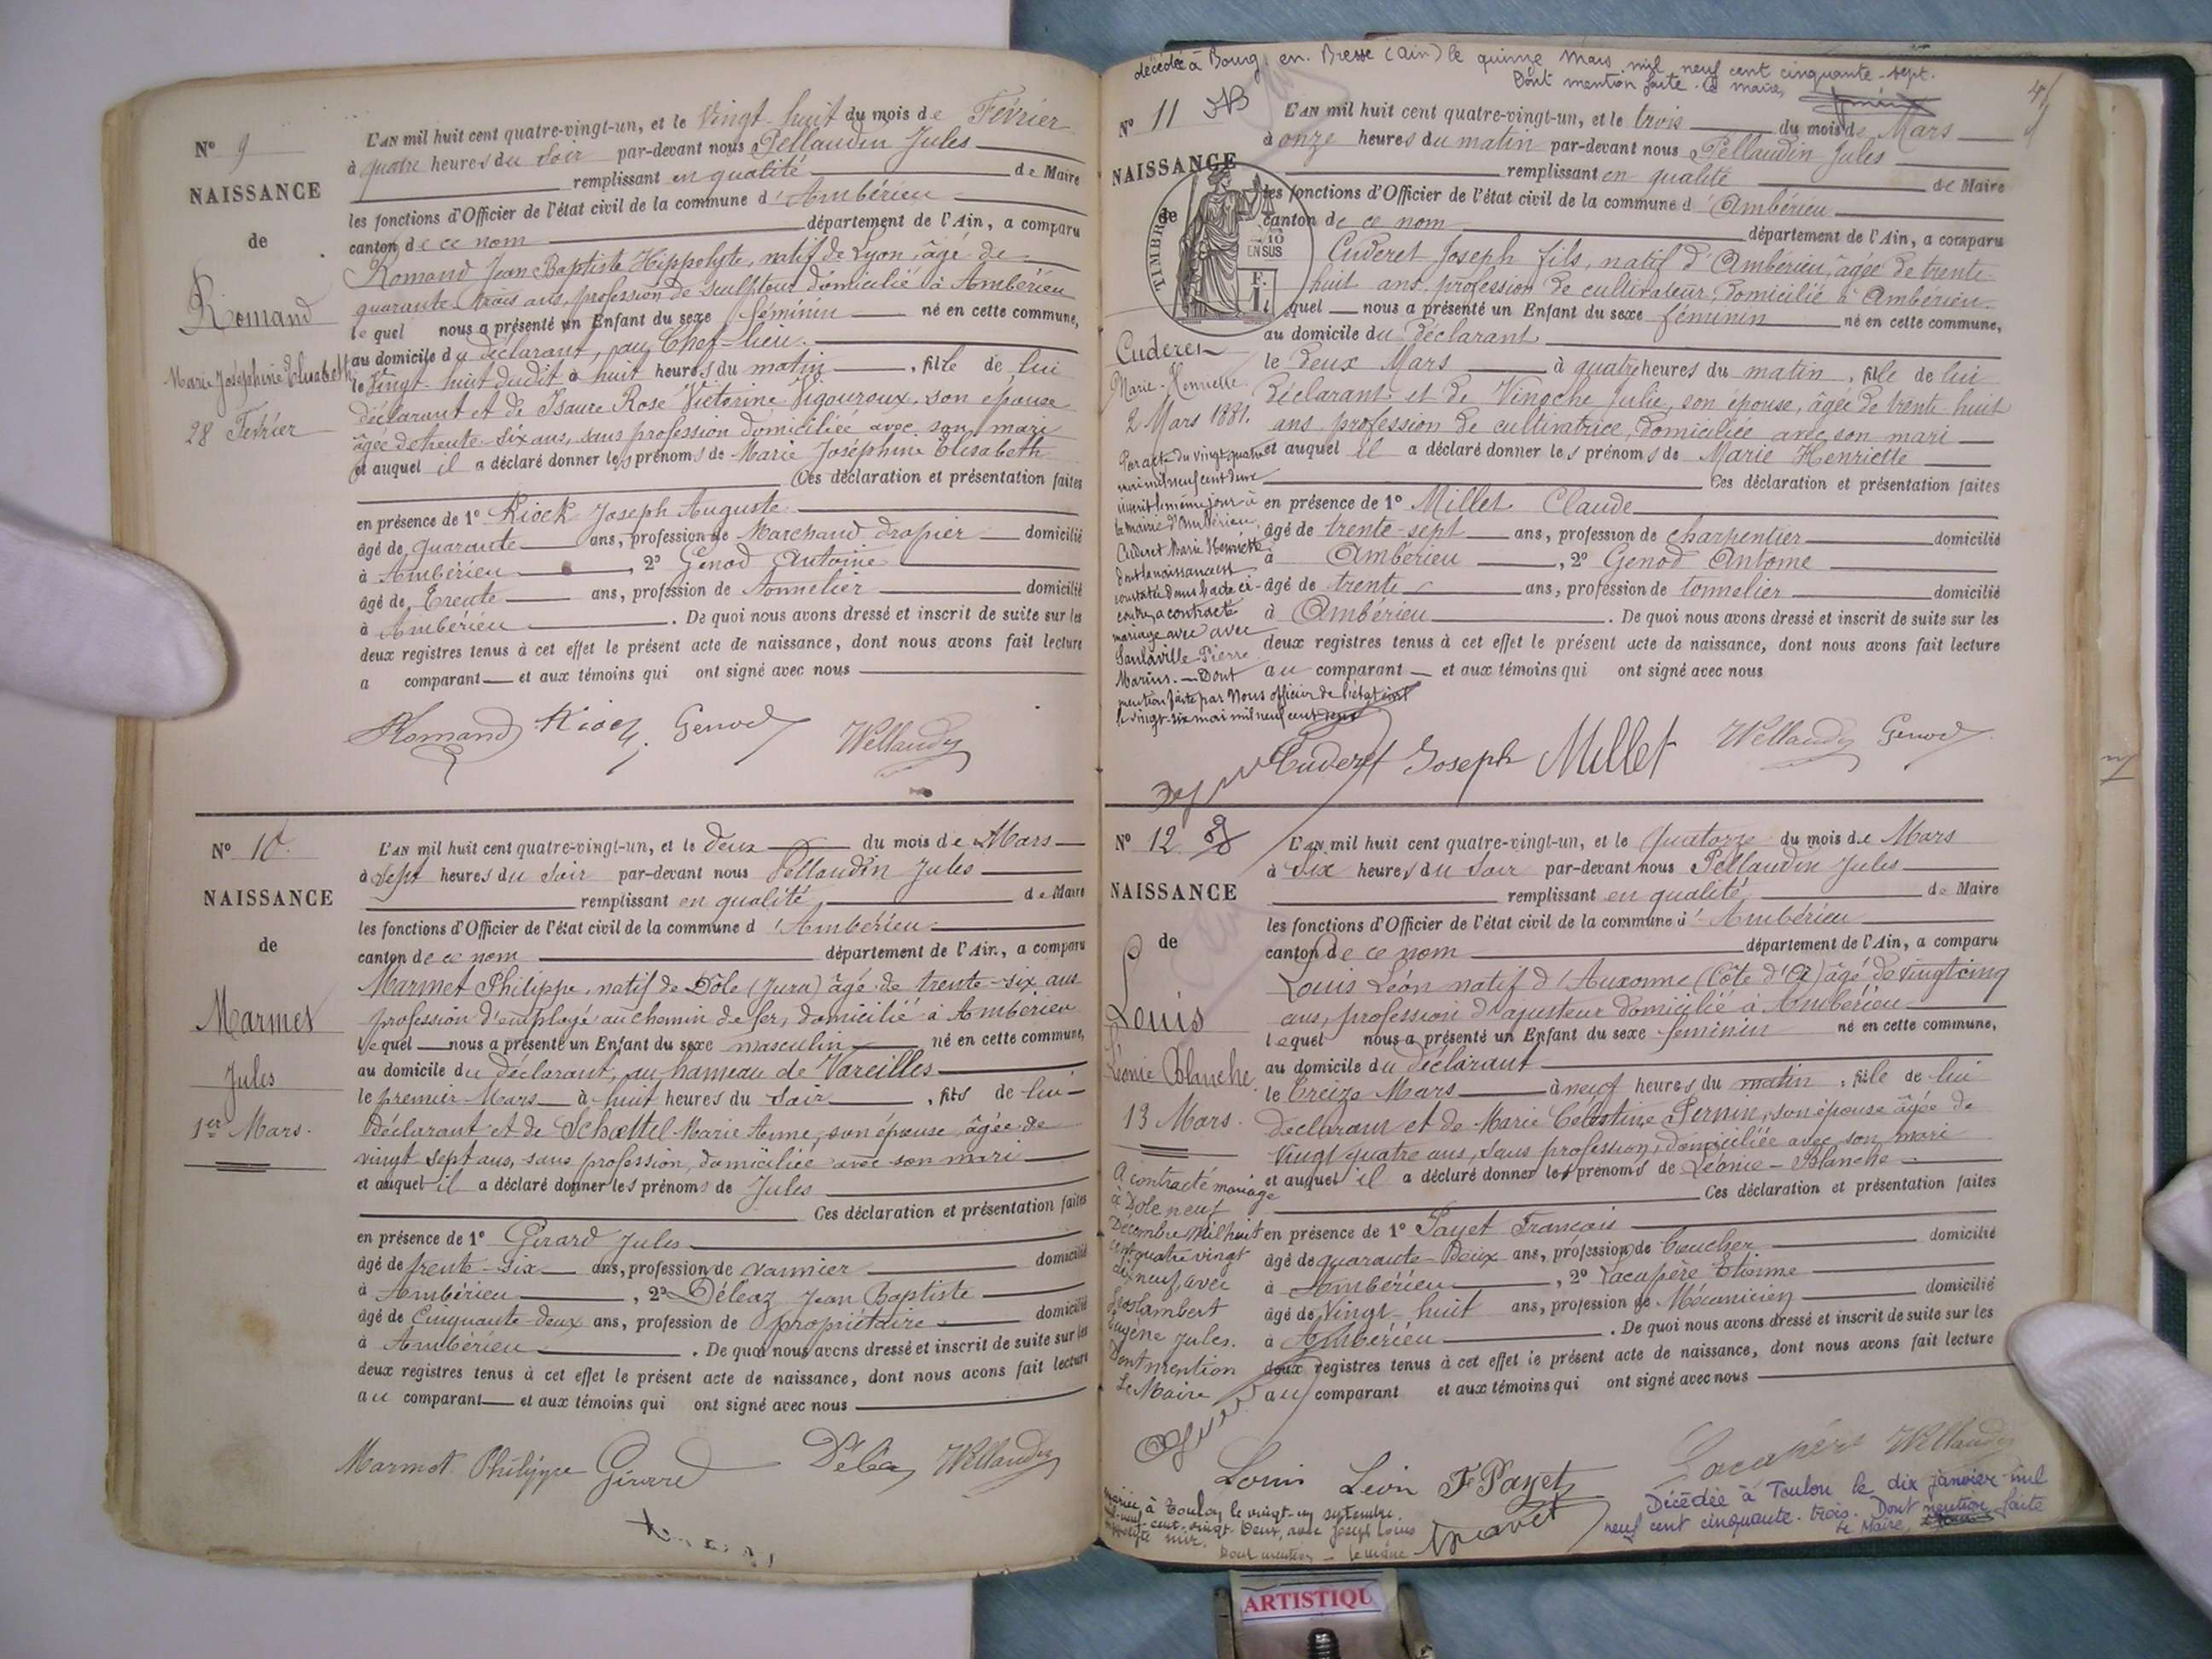 Nº 9
NAISSANCE
de
Romand
Marie Joséphine Elisabeth
28 Février
L'AN mil huit cent quatre-vingt-un, et le Vingt-huit du mois de Février
à quatre heures du Soir par-devant nous Pellaudin Jules
remplissant en qualité de Maire
les fonctions d'Officier de l'état civil de la commune d'Ambérieu
canton de ce nom département de l'Ain, a comparu
Romand Jean Baptiste Hippolyte, natif de Lyon, âgé de
quarante trois ans, profession de sculpteur domicilié à Ambérieu
lequel nous a présenté un Enfant du sexe féminin né en cette commune,
au domicile du déclarant, au Chef-lieu.
le Vingt-huit dudit à huit heures du matin, fille de lui
déclarant et de Isaure Rose Victorine Vigouroux, son épouse
âgée de trente-six ans, sans profession domiciliée avec son mari
et auquel il a déclaré donner les prénoms de Marie Joséphine Elisabeth
Ces déclaration et présentation faites
en présence de 1º Riock Joseph Auguste
âgé de quarante ans, profession de Marchand drapier domicilié
à Ambérieu, 2º Genod Antoine
âgé de Trente ans, profession de tonnelier domicilié
à Ambérieu. De quoi nous avons dressé et inscrit de suite sur les
deux registres tenus à cet effet le présent acte de naissance, dont nous avons fait lecture
a comparant et aux témoins qui ont signé avec nous
Romand Riock Genod JPellaudin
Nº 10
NAISSANCE
de
Marmet
Jules
1er Mars.
L'AN mil huit cent quatre-vingt-un, et le deux du mois de Mars
à Sept heures du Soir par-devant nous Pellaudin Jules
remplissant en qualité de Maire
les fonctions d'Officier de l'état civil de la commune d'Ambérieu
canton de ce nom département de l'Ain, a comparu
Marmet Philippe, natif de Dôle (Jura) âgé de trente-six ans
profession d'employé au chemin de fer, domicilié à Ambérieu
lequel nous a présenté un Enfant du sexe masculin né en cette commune,
au domicile du déclarant, au hameau de Vareilles
le premier Mars à huit heures du Soir, fils de lui
déclarant et de Schættel Marie Anne, son épouse, âgée de
vingt-sept ans, sans profession, domiciliée avec son mari
et auquel il a déclaré donner les prénoms de Jules
Ces déclaration et présentation faites
en présence de 1º Girard Jules
âgé de trente-six ans, profession de vannier domicilié
à Ambérieu, 2º Déléaz Jean Baptiste
âgé de Cinquante-deux ans, profession de propriétaire domicilié
à Ambérieu. De quoi nous avons dressé et inscrit de suite sur les
deux registres tenus à cet effet le présent acte de naissance, dont nous avons fait lecture
au comparant et aux témoins qui ont signé avec nous
Marmet Philippe Girard Déléaz JPellaudin
décédée à Bourg en Bresse (Ain) le quinze Mars mil neuf cent cinquante-sept.
Dont mention faite. Le maire,
Nº 11
NAISSANCE
de
TIMBRE
2/10 EN SUS
Cuderet
Marie-Henriette
2 Mars 1881.
Par acte du vingt quatre
mai mil neuf cent deux
inscrit le même jour à
la mairie d'Ambérieu,
Cuderet Marie Henriette
dont la naissance est
constatée dans l'acte ci-
contre, a contracté
mariage avec avec
Saulaville Pierre
Marius. — Dont
mention faite par Nous officier de l'état civil
le vingt-six mai mil neuf cent deux
L'AN mil huit cent quatre-vingt-un, et le trois du mois de Mars
à onze heures du matin par-devant nous Pellaudin Jules
remplissant en qualité de Maire
les fonctions d'Officier de l'état civil de la commune d'Ambérieu
canton de ce nom département de l'Ain, a comparu
Cuderet Joseph fils, natif d'Ambérieu, âgée de trente-
huit ans, profession de cultivateur, domicilié à Ambérieu.
lequel nous a présenté un Enfant du sexe féminin né en cette commune,
au domicile du déclarant
le deux Mars à quatre heures du matin, fille de lui
déclarant et de Vinoche Julie, son épouse, âgée de trente-huit
ans profession de cultivatrice, domiciliée avec son mari
et auquel il a déclaré donner les prénoms de Marie Henriette
Ces déclaration et présentation faites
en présence de 1º Millet Claude
âgé de trente-sept ans, profession de charpentier domicilié
à Ambérieu, 2º Genod Antoine
âgé de trente ans, profession de tonnelier domicilié
à Ambérieu. De quoi nous avons dressé et inscrit de suite sur les
deux registres tenus à cet effet le présent acte de naissance, dont nous avons fait lecture
au comparant et aux témoins qui ont signé avec nous
Cuderet Joseph Millet JPellaudin Genod
Nº 12
NAISSANCE
de
Louis
Léonie Blanche.
13 Mars.
A contracté mariage
à Dole neuf
Décembre Mil huit
cent quatre vingt
dix neuf avec
Groslambert
Eugène Jules.
Dont mention
Le Maire
L'AN mil huit cent quatre-vingt-un, et le Quatorze du mois de Mars
à Six heures du Soir par-devant nous Pellaudin Jules
remplissant en qualité de Maire
les fonctions d'Officier de l'état civil de la commune d'Ambérieu
canton de ce nom département de l'Ain, a comparu
Louis Léon natif d'Auxonne (Côte d'Or) âgé de Vingt cinq
ans, profession d'ajusteur domicilié à Ambérieu
lequel nous a présenté un Enfant du sexe féminin né en cette commune,
au domicile du déclarant
le treize Mars à neuf heures du matin, fille de lui
déclarant et de Marie Célestine Pernin, son épouse âgée de
Vingt quatre ans, sans profession, domiciliée avec son mari
et auquel il a déclaré donner les prénoms de Léonie-Blanche
Ces déclaration et présentation faites
en présence de 1º Payet François
âgé de quarante-deux ans, profession de boucher domicilié
à Ambérieu, 2º Lacupère Etienne
âgé de Vingt-huit ans, profession de Mécanicien domicilié
à Ambérieu. De quoi nous avons dressé et inscrit de suite sur les
deux registres tenus à cet effet le présent acte de naissance, dont nous avons fait lecture
au comparant et aux témoins qui ont signé avec nous
Louis Léon F Payet Lacupère JPellaudin
Mariée à Toulon le vingt-un septembre
mil-neuf-cent-vingt-deux, avec Joseph Louis
Dont mention - le maire
Décédée à Toulon le dix janvier mil
neuf cent cinquante-trois. Dont mention faite
Le Maire,
ARTISTIQU